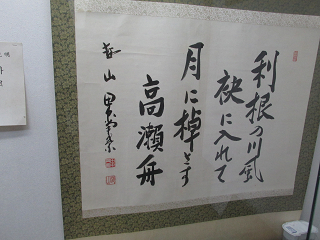 利根の川風
袂に入れて
月に棹さす
高瀬舟